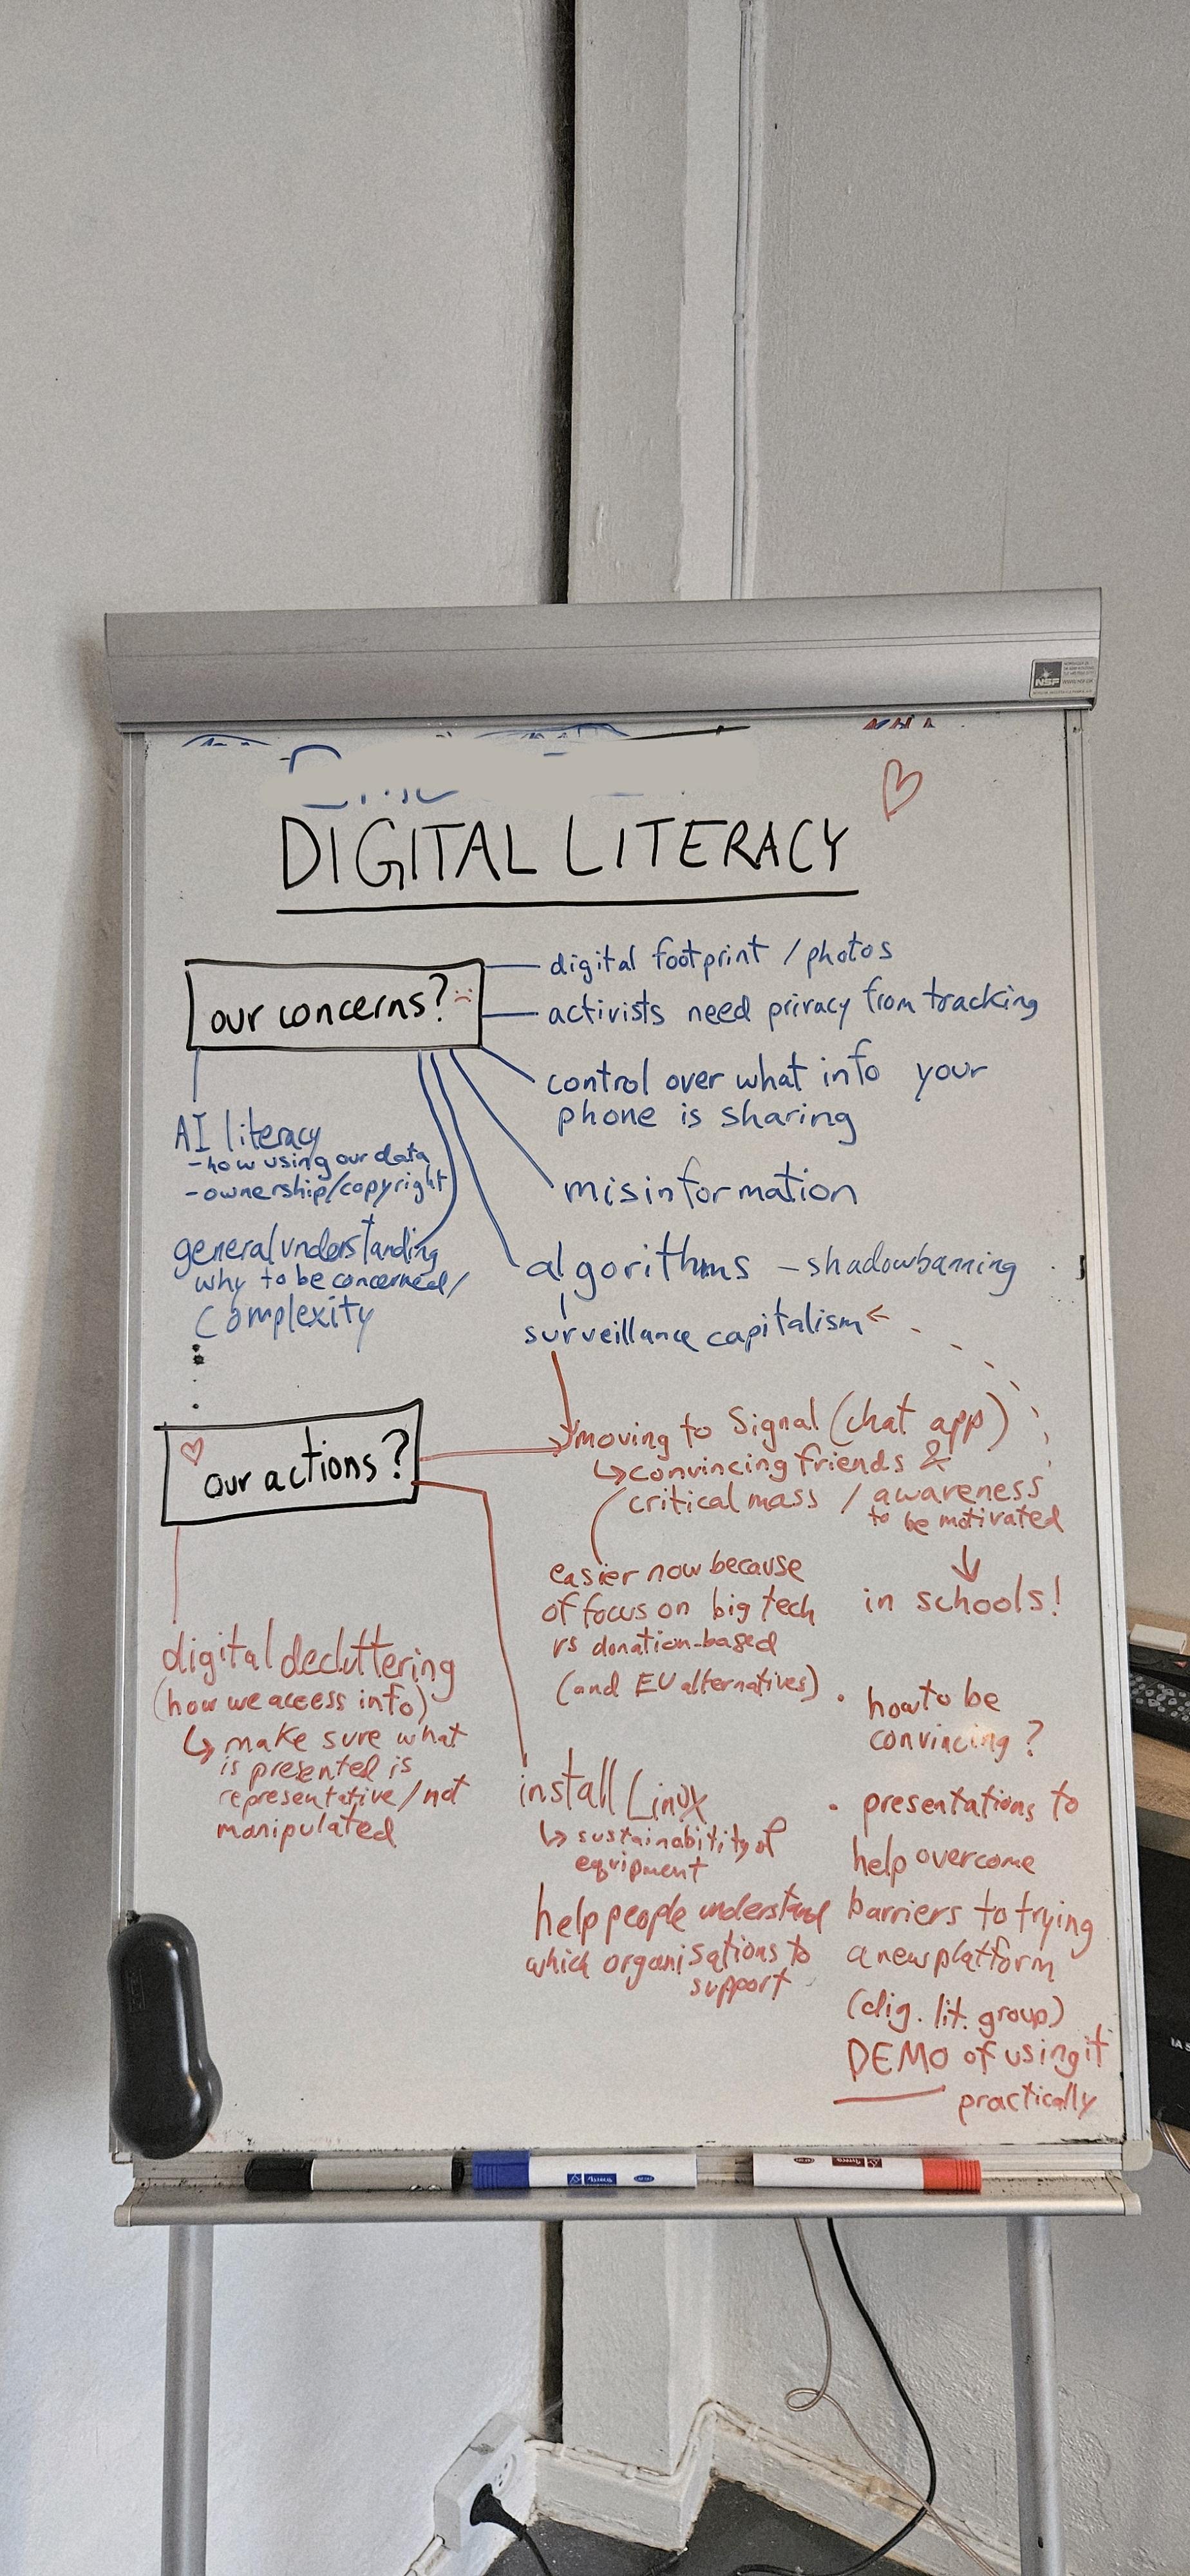 NSF
DIGITAL LITERACY
our concerns?
digital footprint / photos
activists need privacy from tracking
control over what info your
phone is sharing
misinformation
algorithms - shadowbanning
surveillance capitalism
AI literacy
- how using our data
- ownership/copyright
general understanding
why to be concerned/
complexity
our actions?
moving to Signal (chat app)
convincing friends &
critical mass / awareness
to be motivated
in schools!
easier now because
of focus on big tech
vs donation-based
(and EU alternatives)
digital decluttering
(how we access info)
make sure what
is presented is
representative/not
manipulated
install Linux
sustainability of
equipment
help people understand
which organisations to
support
• how to be
convincing?
• presentations to
help overcome
barriers to trying
a new platform
(dig. lit. group)
DEMO of using it
practically